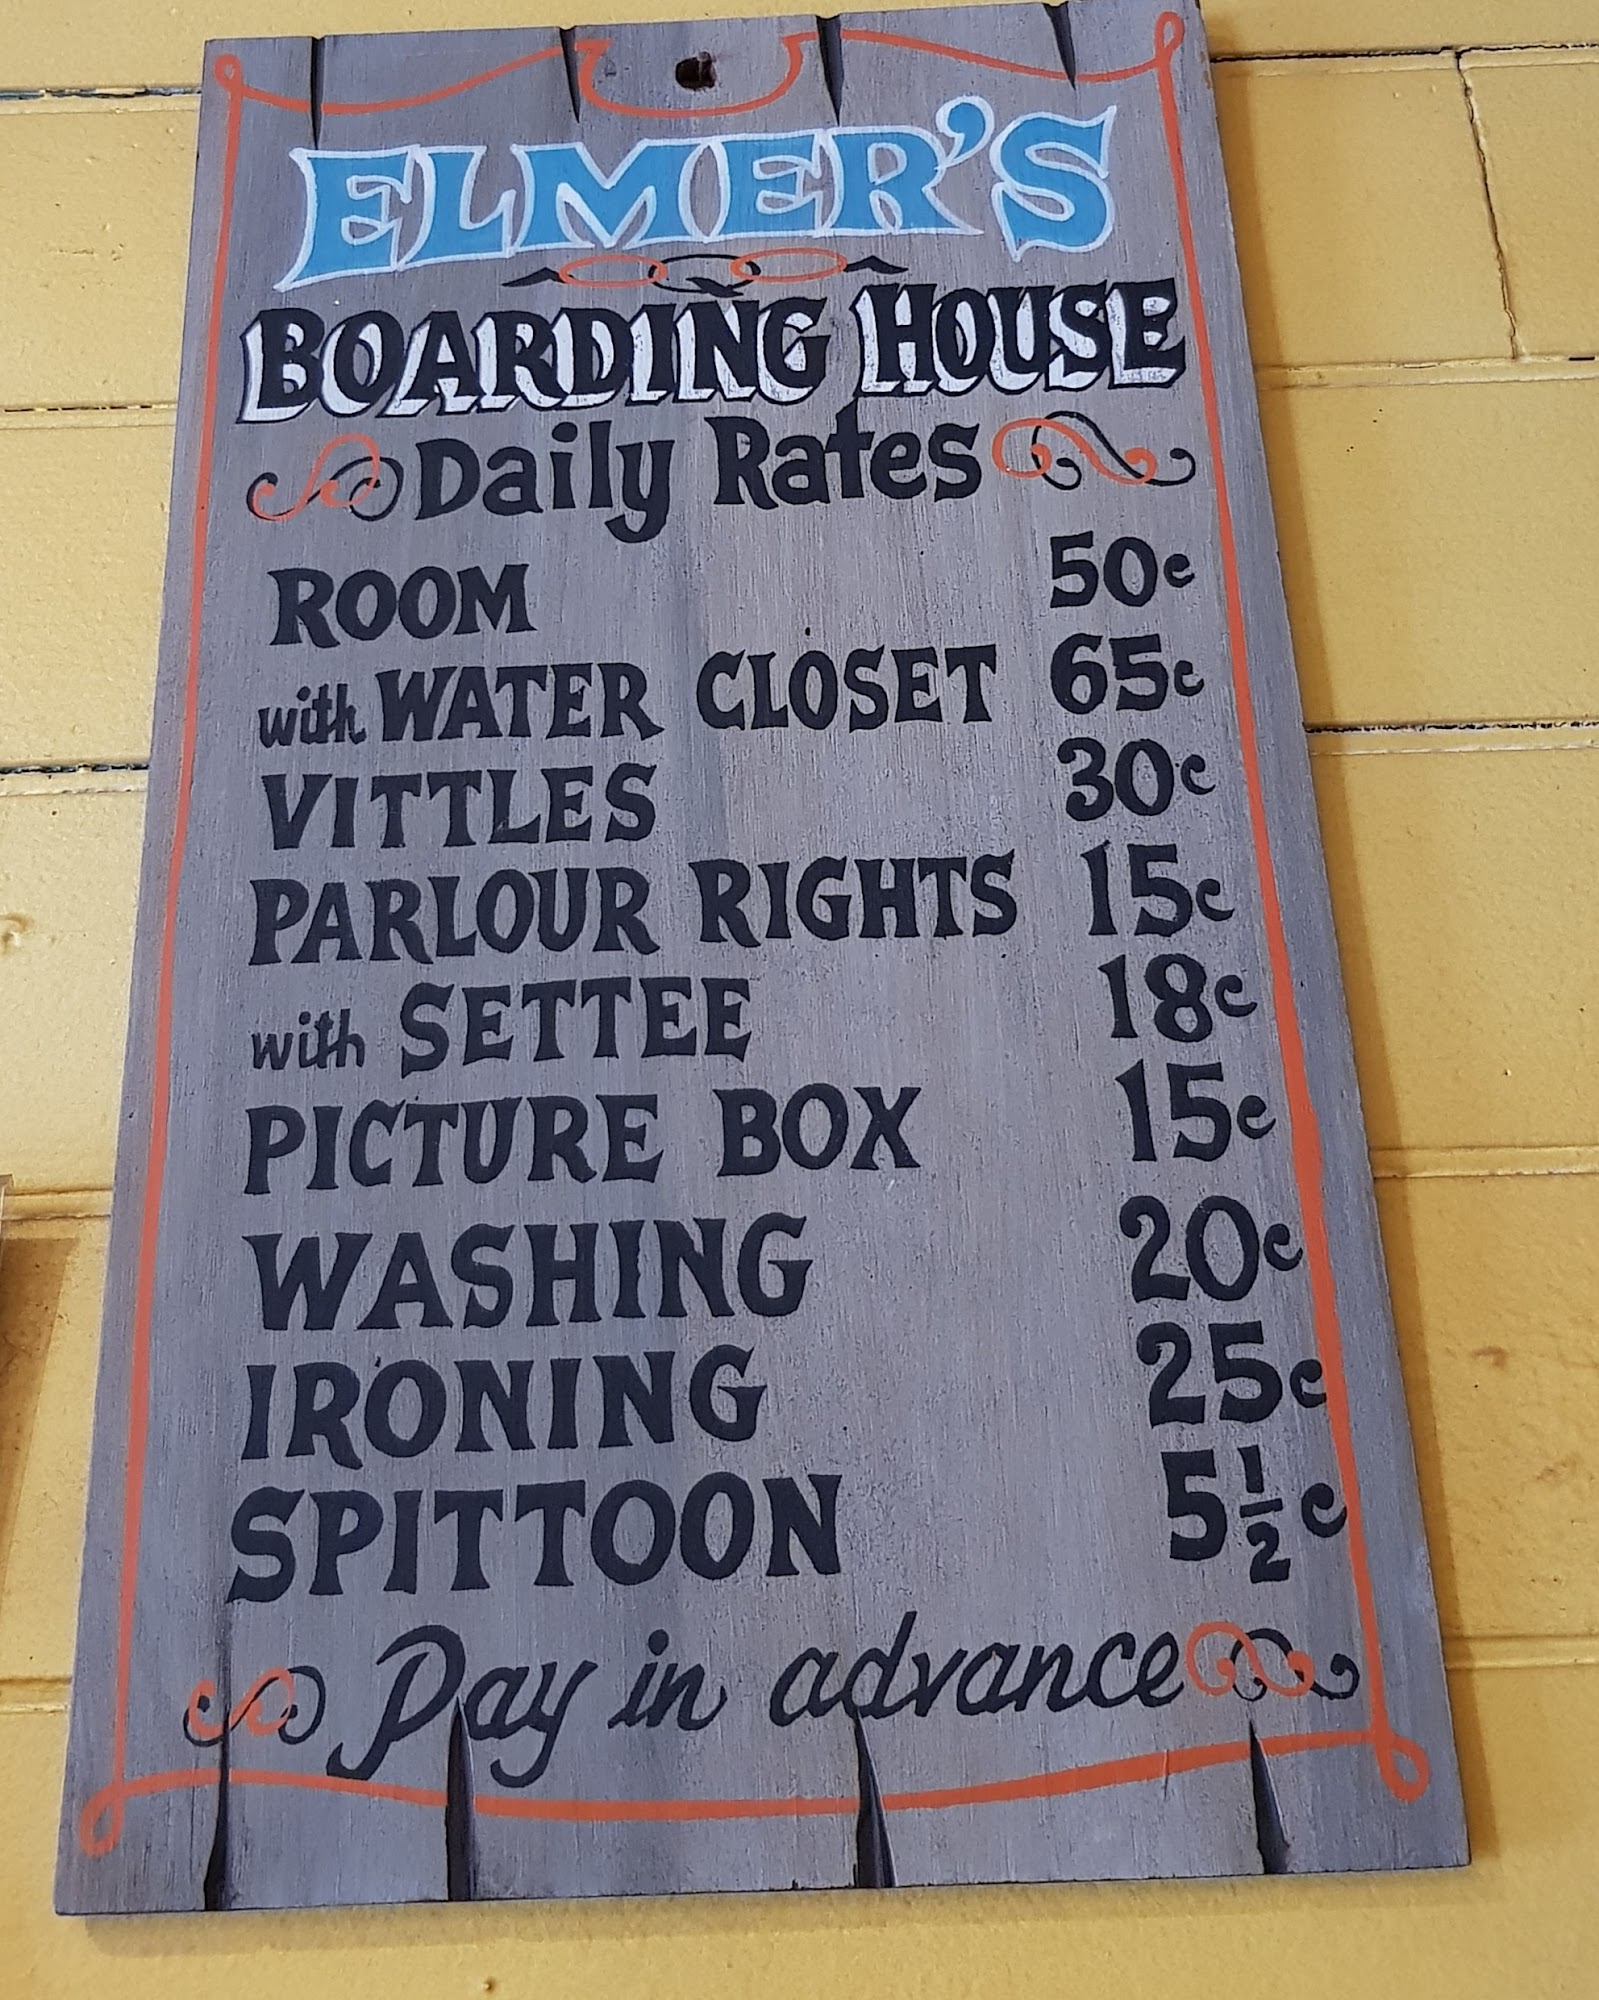 ELMER'S
BOARDING HOUSE
Daily Rates
ROOM 50c
with WATER CLOSET 65c
VITTLES 30c
PARLOUR RIGHTS 15c
with SETTEE 18c
PICTURE BOX 15c
WASHING 20c
IRONING 25c
SPITTOON 5½c
Pay in advance